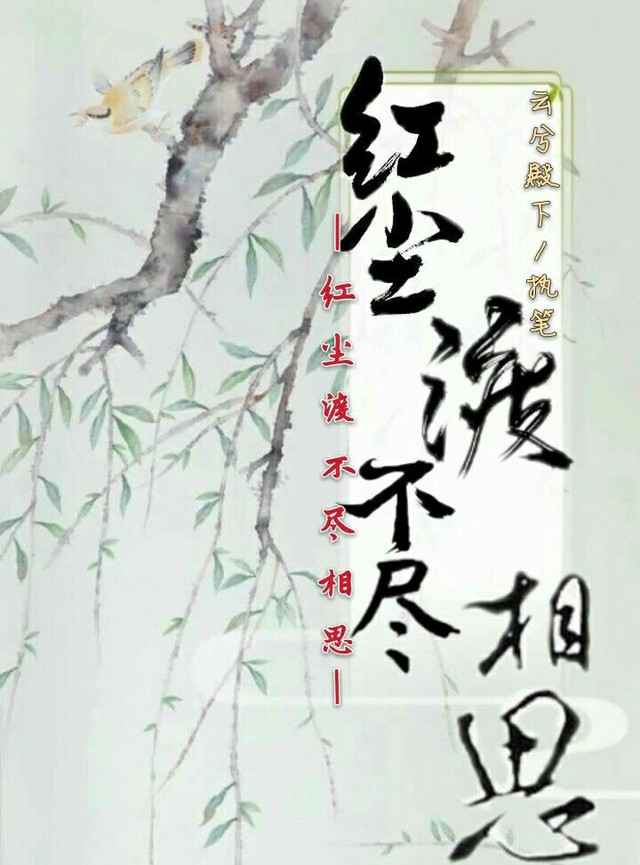 云兮殿下/执笔
红尘
渡
不尽
相思
|红尘渡不尽相思|